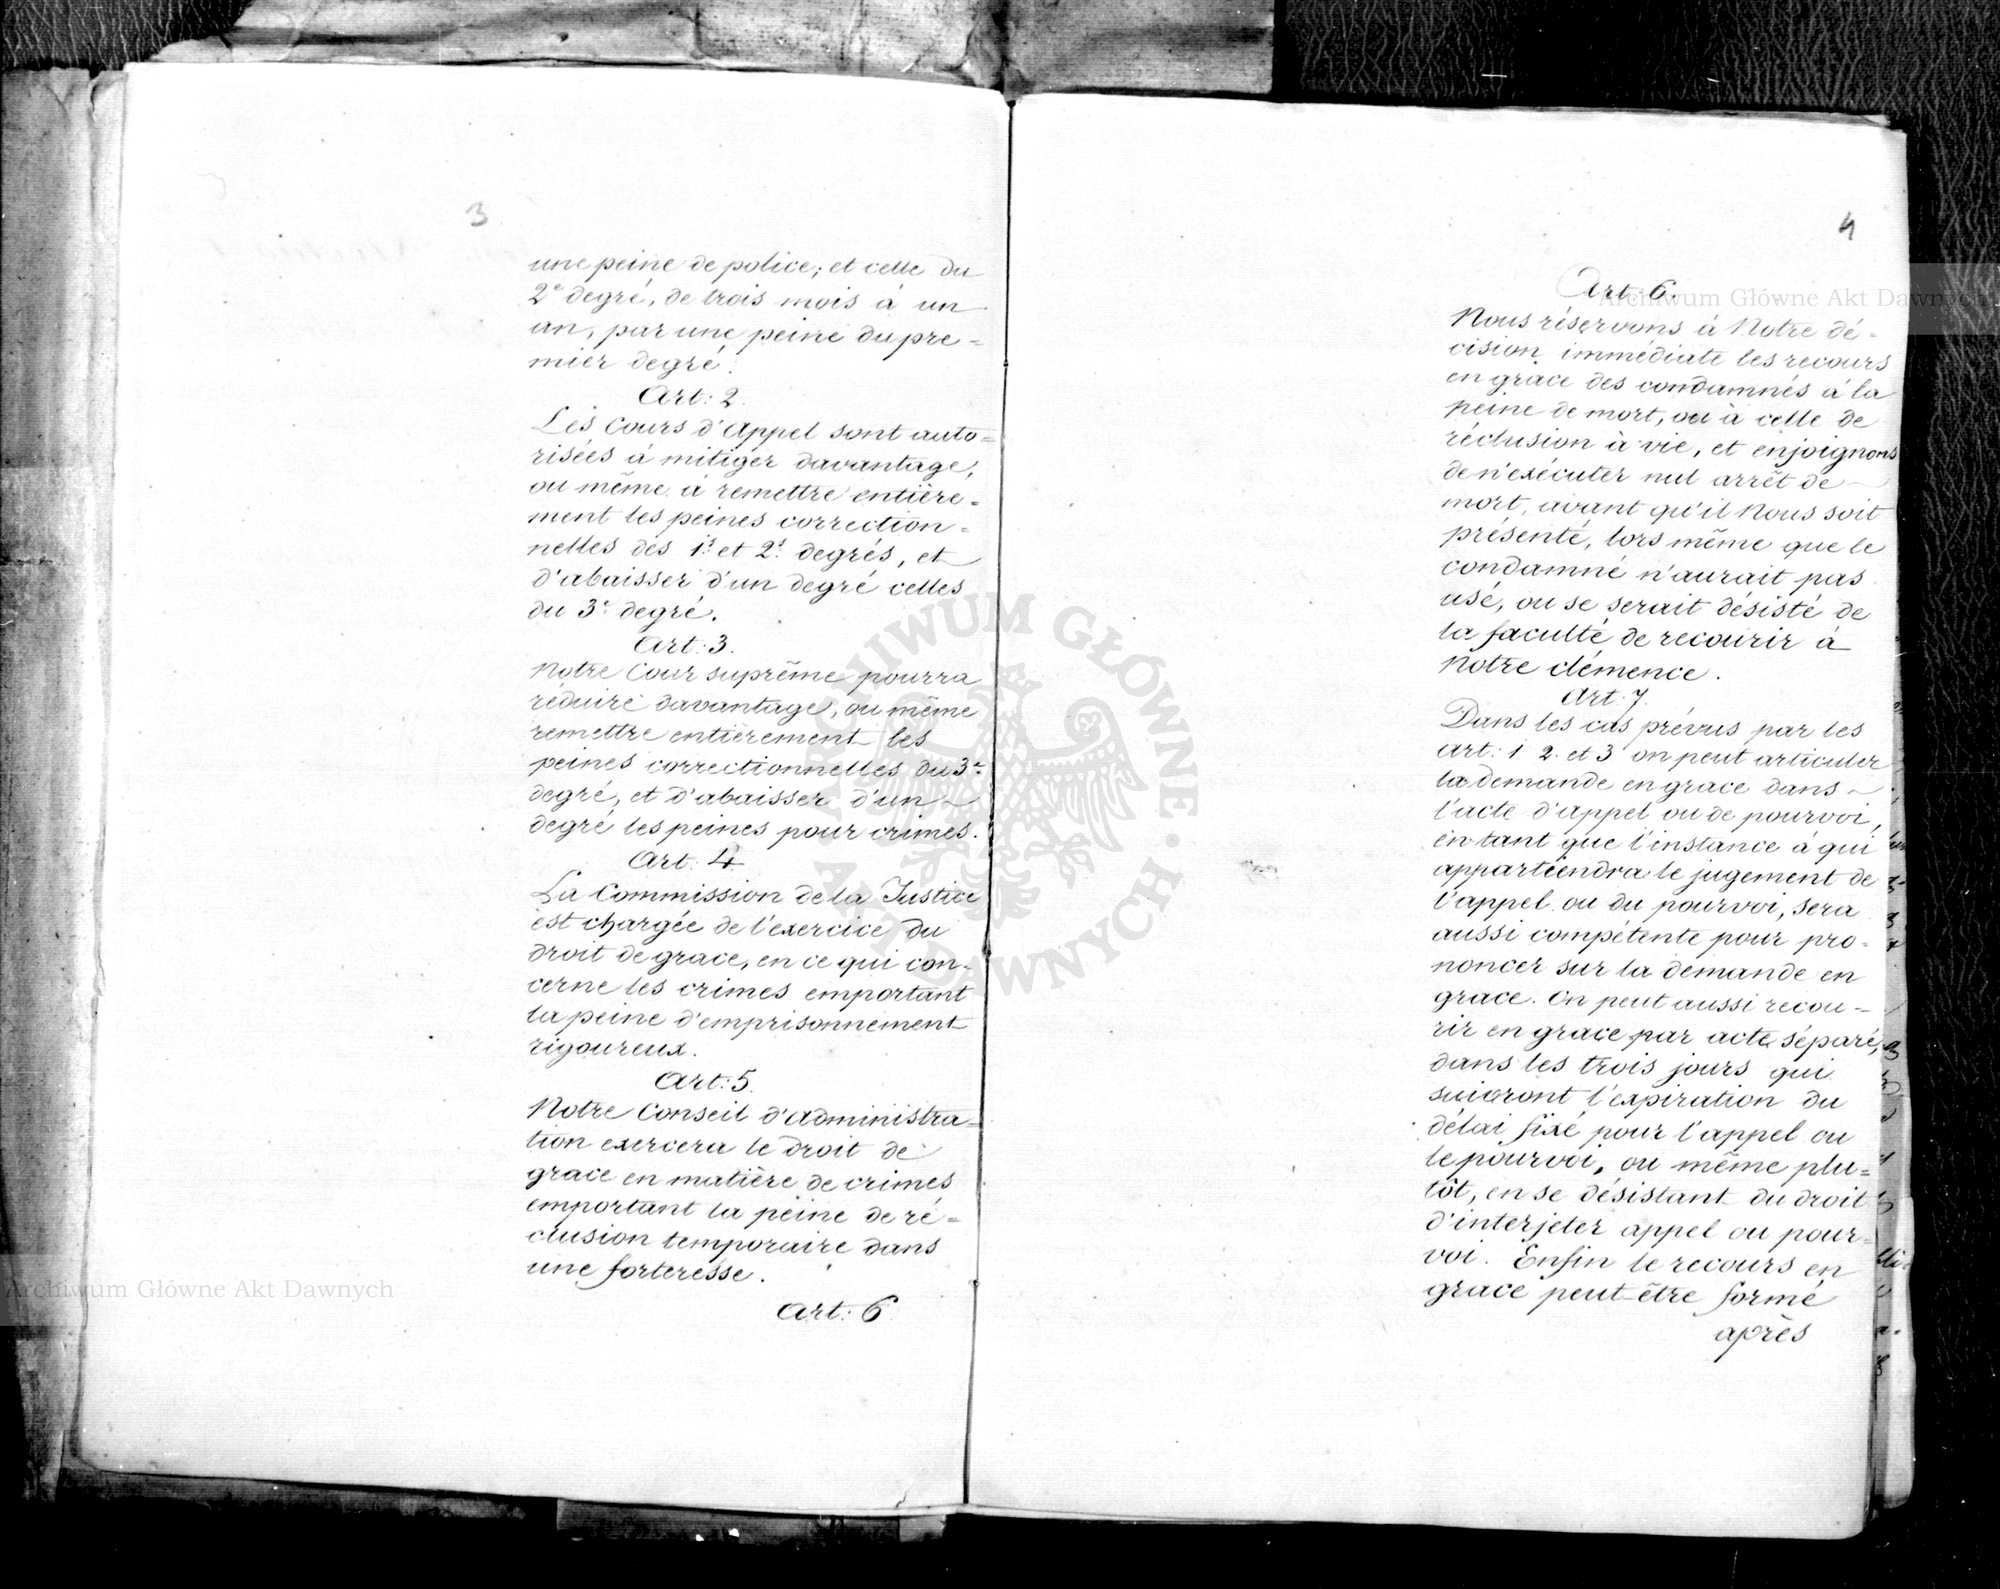 3
une peine de police; et celle du
2e degré, de trois mois à un
an, par une peine du pre=
mier degré.
Art: 2.
Les Cours d'Appel sont auto=
risées à mitiger davantage,
ou même à remettre entière=
ment les peines correction=
nelles des 1r et 2d degrés, et
d'abaisser d'un degré celles
du 3e degré.
Art: 3.
Notre Cour suprême pourra
réduire davantage, ou même
remettre entièrement les
peines correctionnelles du 3e
degré, et d'abaisser d'un
degré les peines pour crimes.
Art: 4
La Commission de la Justice
est chargée de l'exercice du
droit de grace, en ce qui con=
cerne les crimes emportant
la peine d'emprisonnement
rigoureux.
Art: 5.
Notre Conseil d'Administra=
tion exercera le droit de
grace en matière de crimes
emportant la peine de ré=
clusion temporaire dans
une forteresse.
Art: 6
4
Art. 6.
Nous réservons à Notre dé=
cision immédiate les recours
en grâce des condamnés à la
peine de mort, ou à celle de
réclusion à vie, et enjoignons
de n'exécuter nul arrêt de
mort, avant qu'il Nous soit
présenté, lors même que le
condamné n'aurait pas
usé, ou se serait désisté de
la faculté de recourir à
Notre clémence.
Art. 7.
Dans les cas prévus par les
art: 1. 2. et 3 on peut articuler
la demande en grace dans
l'acte d'appel ou de pourvoi,
en tant que l'instance à qui
appartiendra le jugement de
l'appel ou du pourvoi, sera
aussi compétente pour pro=
noncer sur la demande en
grace. On peut aussi recou=
rir en grace par acte séparé,
dans les trois jours qui
suivront l'expiration du
délai fixé pour l'appel ou
le pourvoi, ou même plu=
tôt, en se désistant du droit
d'interjeter appel ou pour=
voi. Enfin le recours en
grace peut-être formé
après
Archiwum Główne Akt Dawnych
Archiwum Główne Akt Dawnych
ARCHIWUM GŁÓWNE AKT DAWNYCH